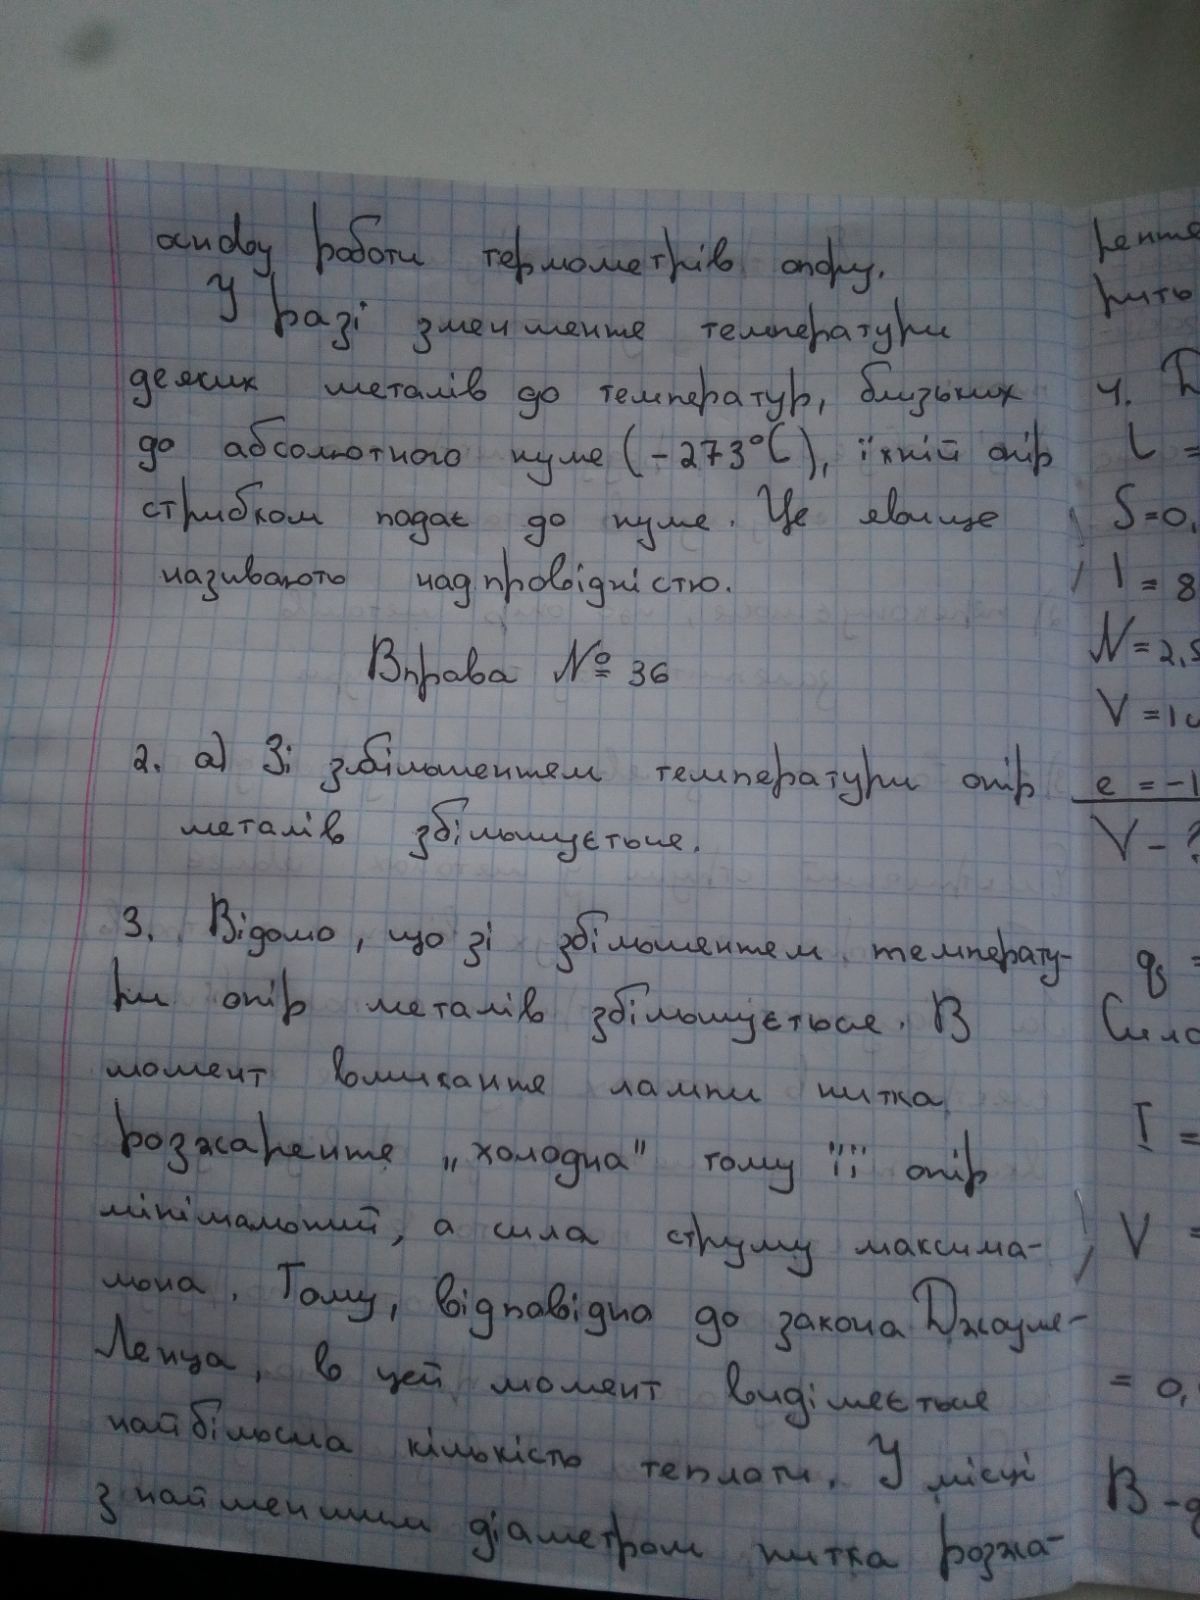 роботи термометрів опору.
У разі зменшення температури
деяких металів до температур, близьких
до абсолютного нуля (-273°C), їхній опір
стрибком падає до нуля. Це явище
називають надпровідністю.
Вправа № 36
2. а) Зі збільшенням температури опір
металів збільшується.
3. Відомо, що зі збільшенням температу-
ри опір металів збільшується. В
момент вмикання лампи нитка
розжарення „холодна" тому її опір
мінімальний, а сила струму максима-
льна. Тому, відповідно до закона Джоуля-
Ленца, в цей момент виділяється
найбільша кількість теплоти. У місці
з найменшим діаметром нитка розжа-
рення
рить
4.
l =
S=0,
I = 8
N=2,5
V =10
e = -1
V - ?
q =
Сила
I =
V =
= 0,
В -